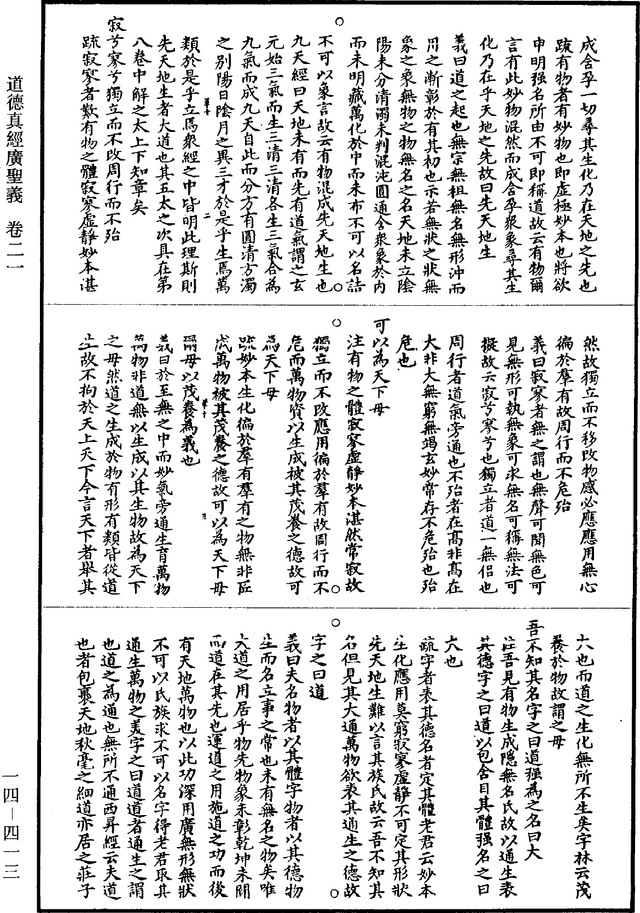 道德真經廣聖義　卷二一
一四—四一三
成含孕一切尋其生化乃在天地之先也
疏有物者有妙物也即虛極妙本也將欲
申明強名所由不可即稱道故云有物爾
言有此妙物混然而成含孕衆象尋其生
化乃在乎天地之先故曰先天地生
義曰道之起也無宗無祖無名無形沖而
用之漸彰於有其初也示若無狀之狀無
象之象無物之物無名之名天地未立陰
陽未分清濁未判混沌圓通含衆象於內
而未明藏萬化於中而未布不可以名詰
不可以象言故云有物混成先天地生也
九天經曰天地未有而先有道氣謂之玄
元始三氣而生三清三清各生三氣合為
九氣而成九天自此而分方有圓清方濁
之別陽日陰月之異三才於是乎生焉萬
類於是乎立焉衆經之中皆明此理斯則
先天地生者大道也其五太之次具在第
八卷中解之太上下知章矣
寂兮寥兮獨立而不改周行而不殆
疏寂寥者歎有物之體寂寥虛靜妙本湛
然故獨立而不移改物感必應應用無心
徧於羣有故周行而不危殆
義曰寂寥者無之謂也無聲可聞無色可
見無形可執無象可求無名可稱無法可
擬故云寂兮寥兮也獨立者道一無侶也
周行者道氣旁通也不殆者在高非高在
大非大無窮無竭玄妙常存不危殆也殆
危也
可以為天下母
注有物之體寂寥虛靜妙本湛然常寂故
獨立而不改應用徧於羣有故周行而不
危而萬物資以生成被其茂養之德故可
為天下母
疏妙本生化徧於羣有羣有之物無非匠
成萬物被其茂養之德故可以為天下母
爾母以茂養為義也
義曰於至無之中而妙氣旁通生育萬物
萬物非道無以生成以其生物故為天下
之母然道之生成於物有形有類皆從道
生故不拘於天上天下今言天下者舉其
大也而道之生化無所不生矣字林云茂
養於物故謂之母
吾不知其名字之曰道強為之名曰大
注吾見有物生成隱無名氏故以通生表
其德字之曰道以包含目其體強名之曰
大也
疏字者表其德名者定其體老君云妙本
生化應用莫窮寂寥虛靜不可定其形狀
先天地生難以言其族氏故云吾不知其
名但見其大通萬物欲表其通生之德故
字之曰道
義曰夫名物者以其體字物者以其德物
生而名立事之常也未有無名之物矣唯
大道之用居乎物先物象未彰乾坤未闢
而道在其先也運道之用施道之功而後
有天地萬物也以此功深用廣無形無狀
不可以氏族求不可以名字得老君取其
通生萬物之美字之曰道道者通生之謂
也道之為通也無所不通西昇經云夫道
也者包裹天地秋毫之細道亦居之莊子